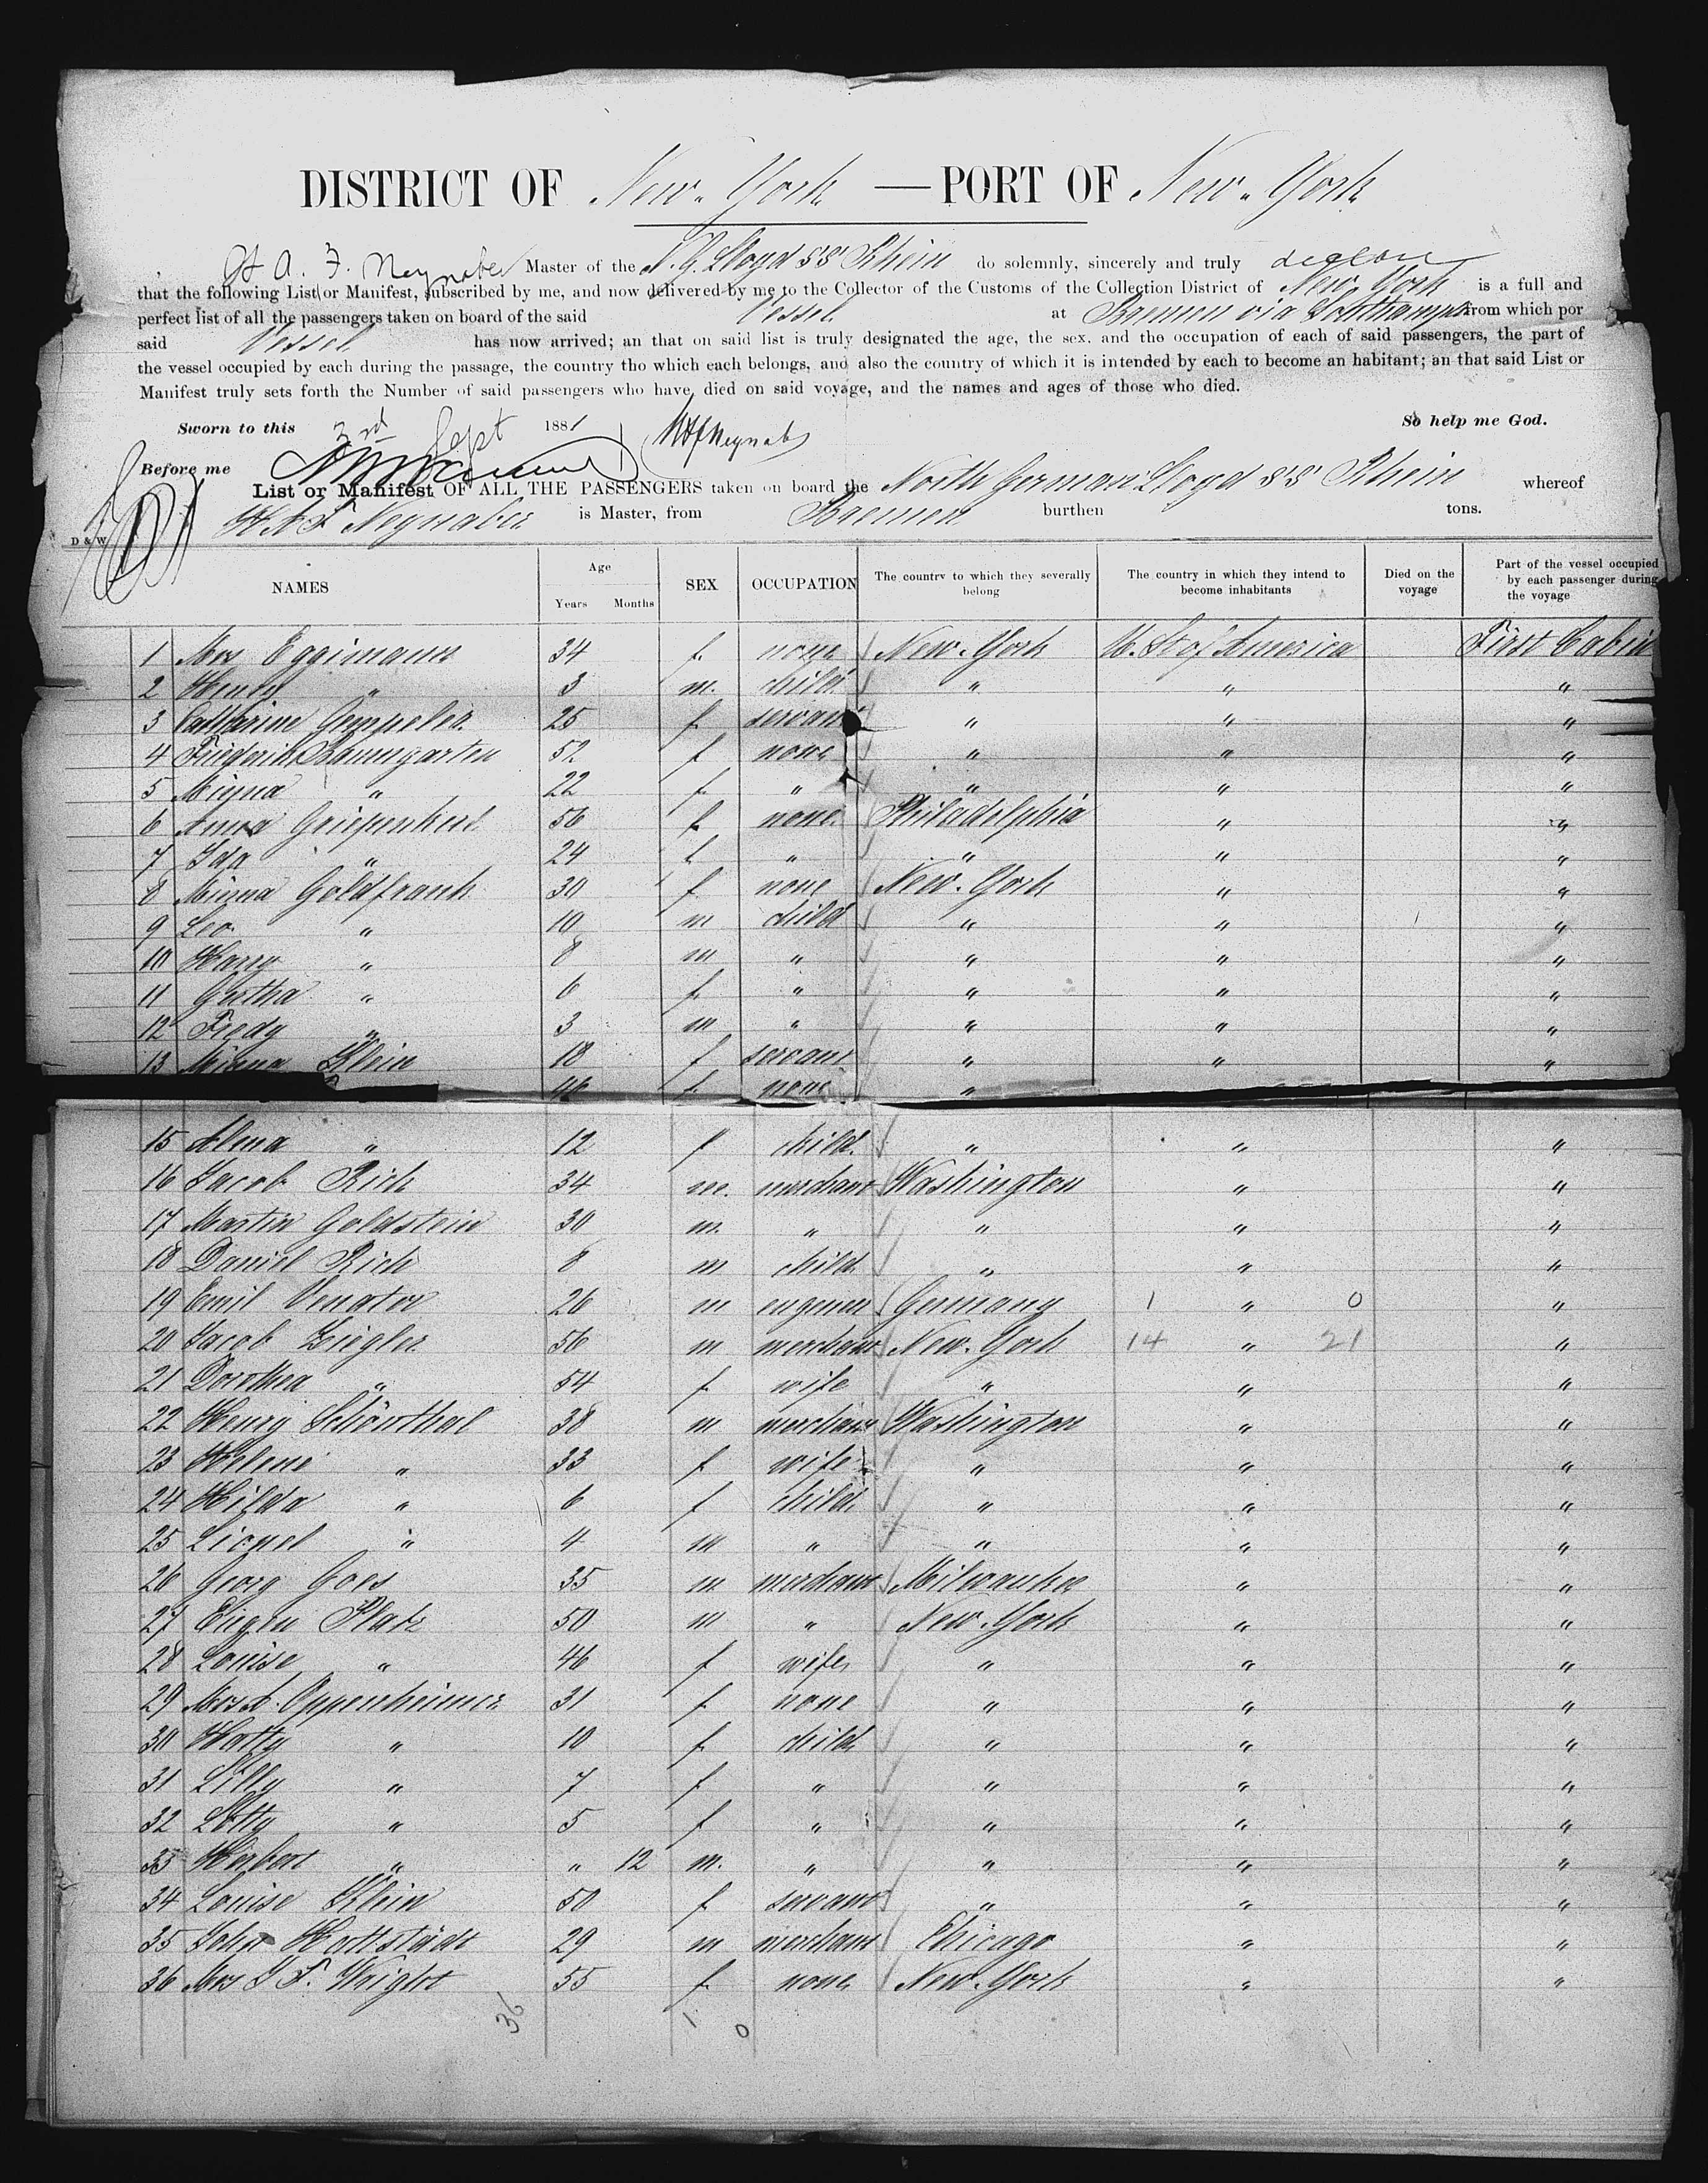 DISTRICT OF New York — PORT OF New York
H A. F. Neynaber Master of the N. G. Lloyd SS Rhein do solemnly, sincerely and truly declare
that the following List or Manifest, subscribed by me, and now delivered by me to the Collector of the Customs of the Collection District of New York is a full and
perfect list of all the passengers taken on board of the said Vessel at Bremen via Southampton from which por
said Vessel has now arrived; an that on said list is truly designated the age, the sex, and the occupation of each of said passengers, the part of
the vessel occupied by each during the passage, the country tho which each belongs, and also the country of which it is intended by each to become an habitant; an that said List or
Manifest truly sets forth the Number of said passengers who have died on said voyage, and the names and ages of those who died.
Sworn to this 3rd Sept 1881 HAFNeynaber So help me God.
Before me
List or Manifest OF ALL THE PASSENGERS taken on board the North German Lloyd SS Rhein whereof
H A F Neynaber is Master, from Bremen burthen tons.
D & W
NAMES Age Years Months SEX OCCUPATION The country to which they severally belong The country in which they intend to become inhabitants Died on the voyage Part of the vessel occupied by each passenger during the voyage
1 Mrs Eggimann 34 f. none New York U. St of America First Cabin
2 Henry " 3 m. child " " "
3 Catherine Gempeler 25 f servant " " "
4 Friederike Baumgarten 52 f none " " "
5 Minna " 22 f. " " " "
6 Anna Griepenkerl 56 f. none Philadelphia " "
7 Ida " 24 f. " " " "
8 Minna Goldfrank 30 f none New York " "
9 Leo " 10 m child " " "
10 Harry " 8 m " " " "
11 Gertha " 6 f. " " " "
12 Fredy " 3 m " " " "
13 Minna Klein 18 f servant " " "
46 f. none "
15 Alma " 12 f child. " " "
16 Jacob Rich 34 m. merchant Washington " "
17 Martin Goldstein 30 m. " " " "
18 Daniel Rich 8 m child " " "
19 Emil Venator 26 m engeneer Germany 1 " 0 "
20 Jacob Ziegler 56 m merchant New York 14 " 21 "
21 Dorothea " 54 f. wife " " "
22 Henry Schönthal 38 m merchant Washington " "
23 Helene " 33 f wife " " "
24 Hilda " 6 f child " " "
25 Lionel " 4 m " " " "
26 Georg Goes 35 m merchant Milwaukee " "
27 Eugen Platz 50 m " New York " "
28 Louise " 46 f wife " " "
29 Mrs A. Oppenheimer 31 f. none " " "
30 Hatty " 10 f. child " " "
31 Lilly " 7 f. " " " "
32 Lotty " 5 f " " " "
33 Herbert " " 12 m. " " " "
34 Louise Klein 50 f servant " " "
35 John Hattstädt 29 m merchant Chicago " "
36 Mrs J F. Wright 55 f. none New York " "
36 1 0